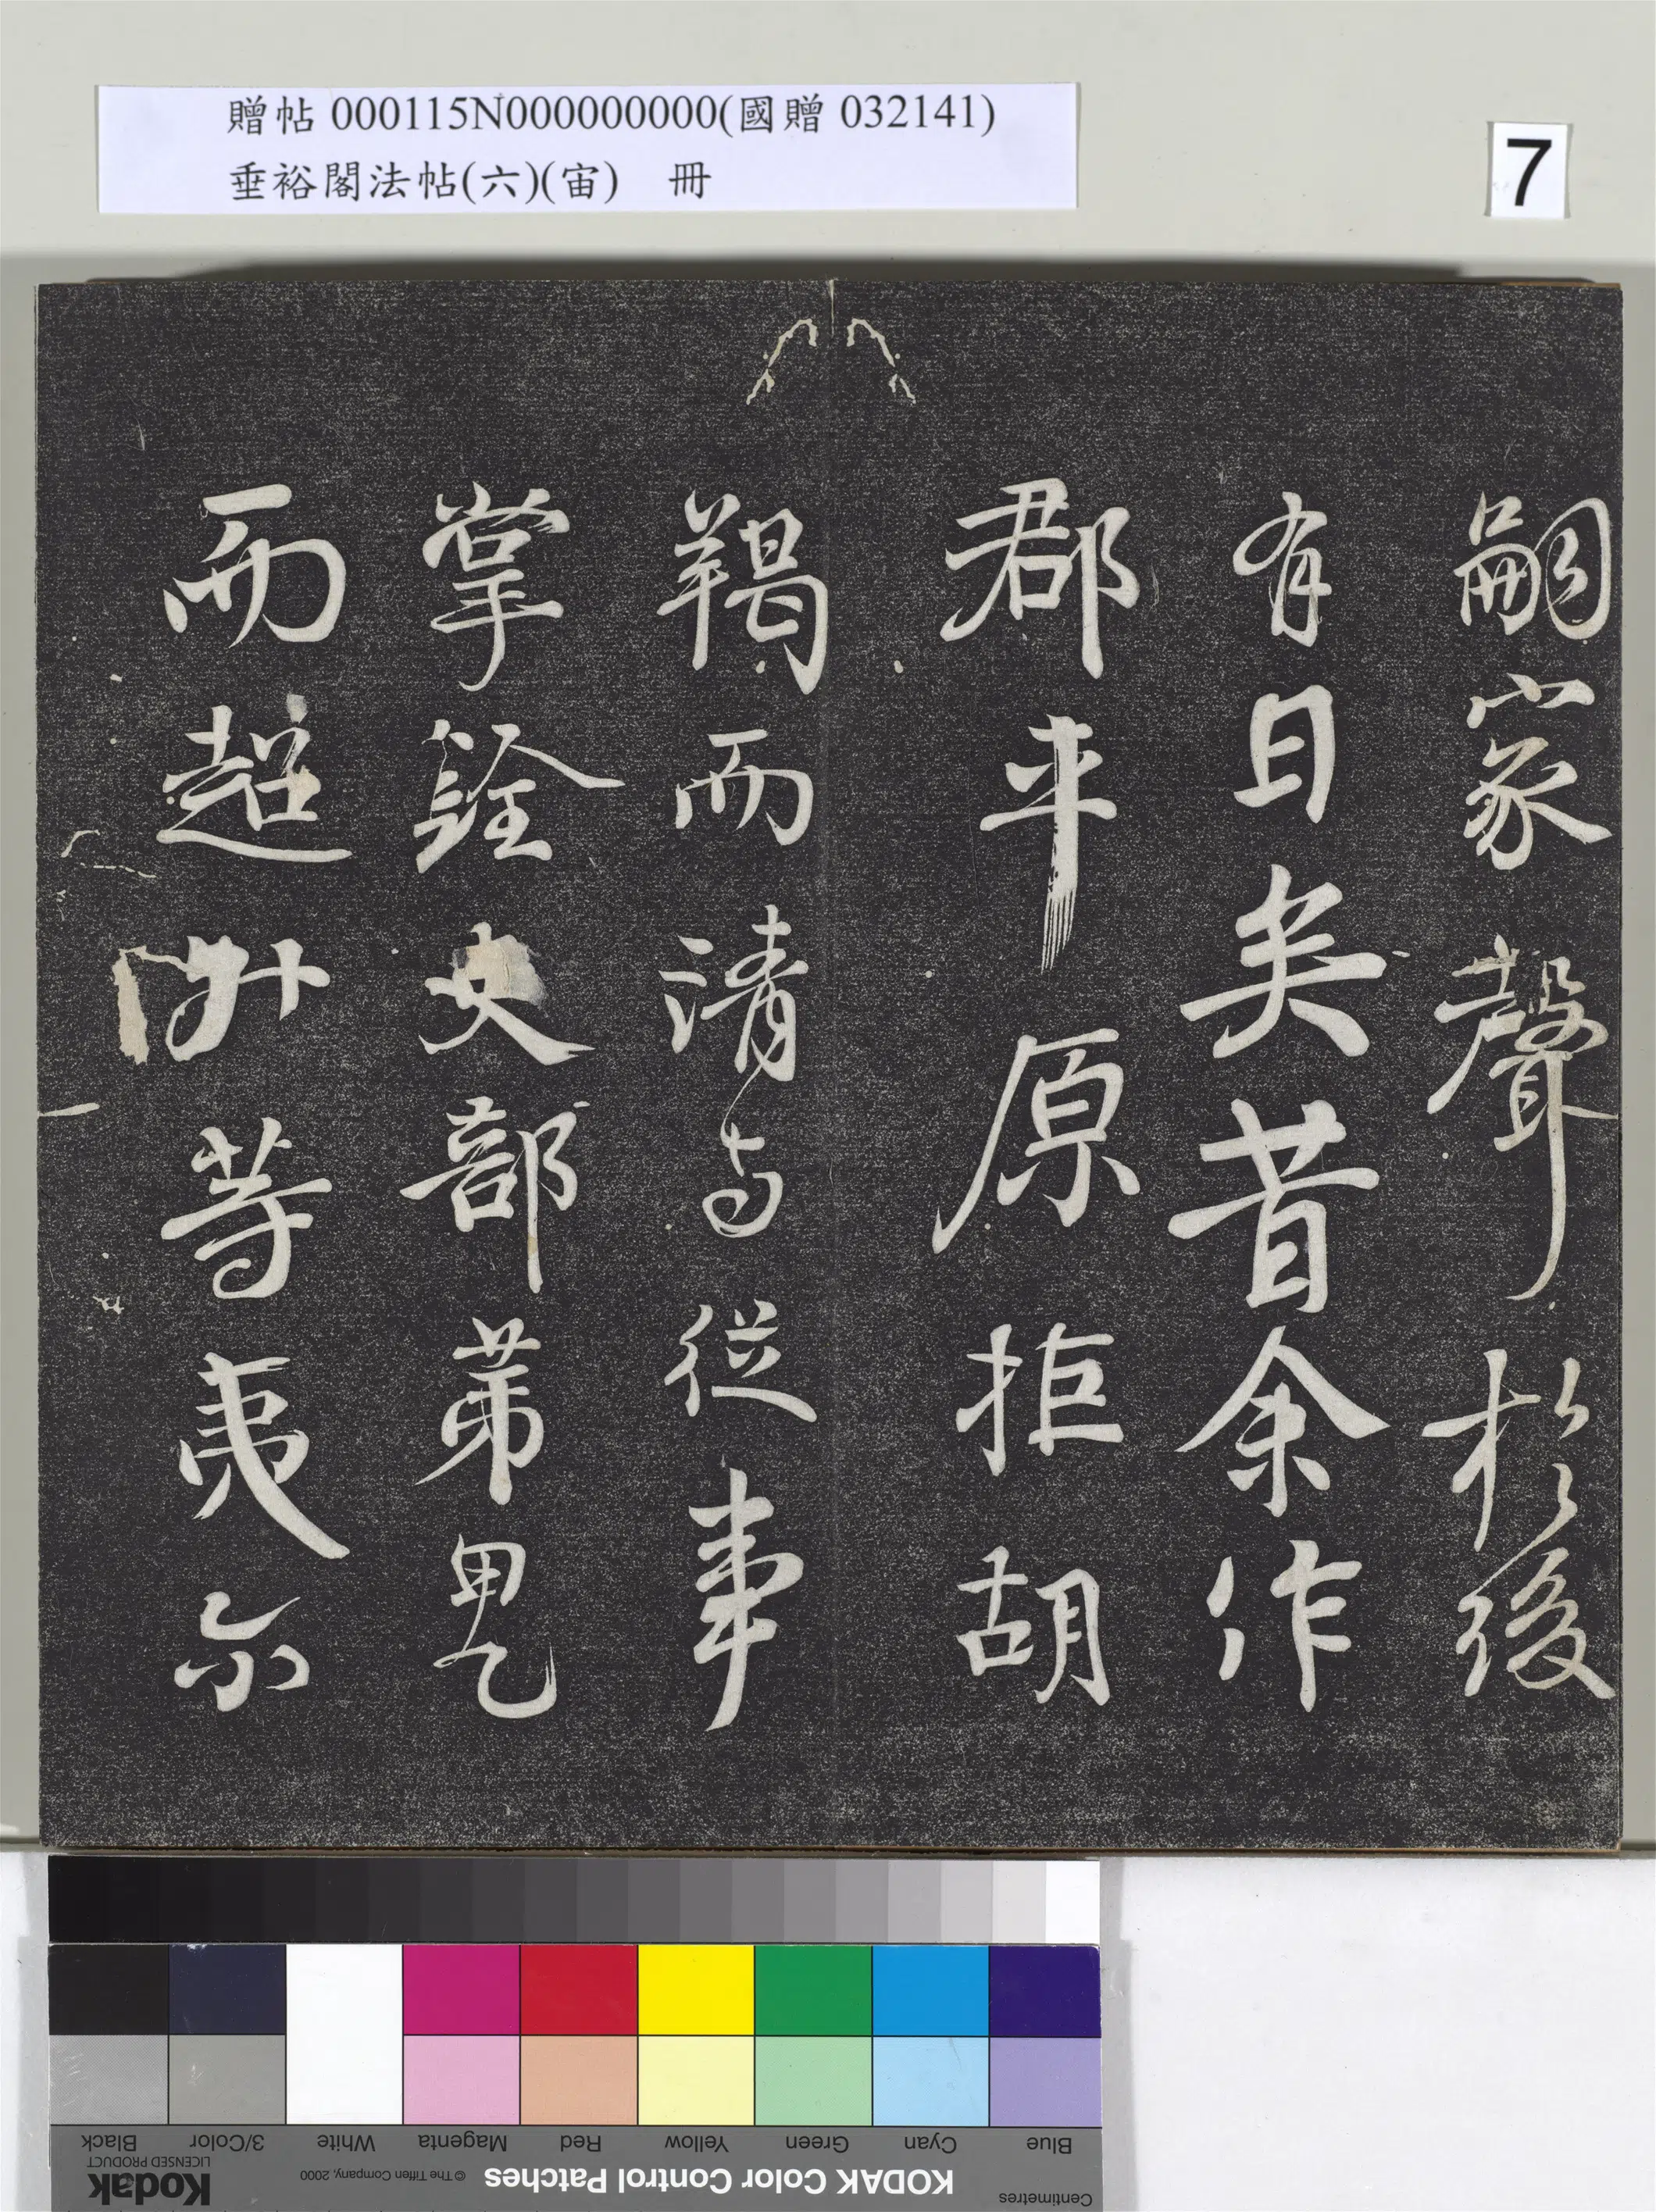 贈帖 000115N000000000(國贈 032141)
垂裕閣法帖(六)(宙) 冊
7
嗣家聲於後
有日矣昔余作
郡平原拒胡
羯而清与從事
掌銓吏部第甲乙
而超升等夷尔
Blue
Cyan
Green
Yellow
Red
Magenta
White
3/Color
Black
Centimetres
KODAK Color Control Patches
© The Tiffen Company, 2000
Kodak
LICENSED PRODUCT